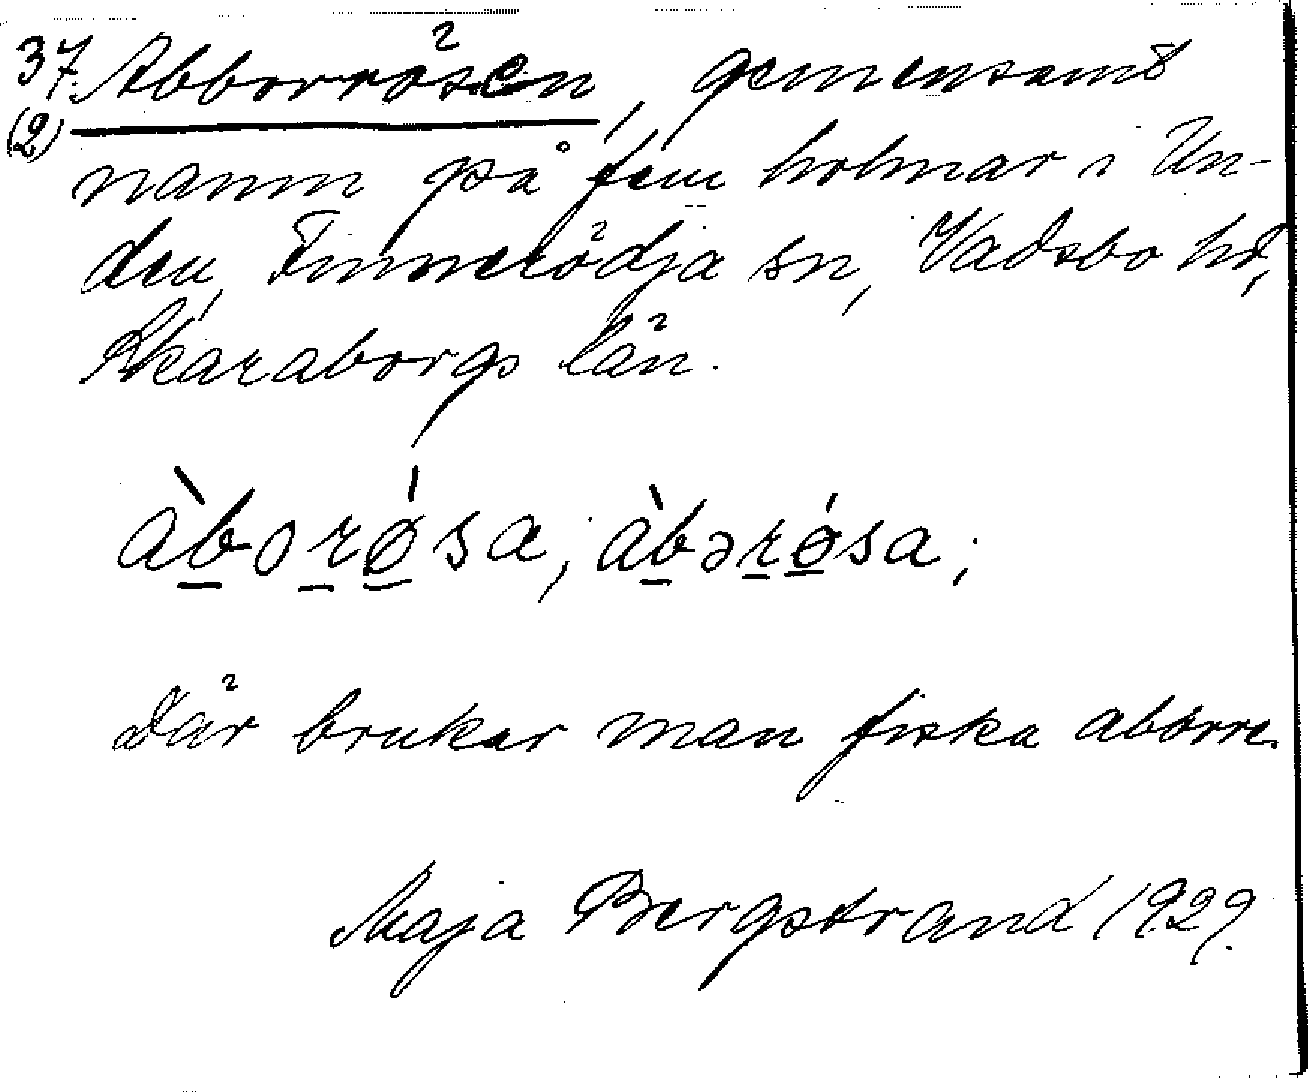 37. Abborrösen, gemensamt
(2)
namn på fem holmar i Un-
den, Finnerödja sn, Vadsbo hd,
Skaraborgs län.
àborǿsa, àbərǿsa;
Där brukar man fiska aborre.
Maja Bergstrand 1929.